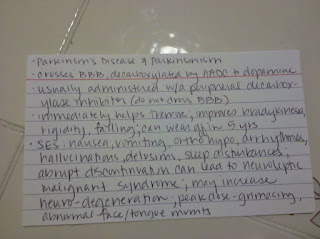 · Parkinson's Disease & Parkinsonism
· crosses BBB, decarboxylated by AADC to dopamine
· usually administered w/a peripheral decarbox-
ylase inhibitor (do not cross BBB)
· immediately helps tremor; improves bradykinesia,
rigidity, falling; can wear off in 5 yrs
· SES: nausea, vomiting, ortho hypo, arrhythmias,
hallucinations, delusions, sleep disturbances;
abrupt discontinuation can lead to neuroleptic
malignant syndrome; may increase
neuro-degeneration, peak dose-grimacing,
abnormal face/tongue mvmts